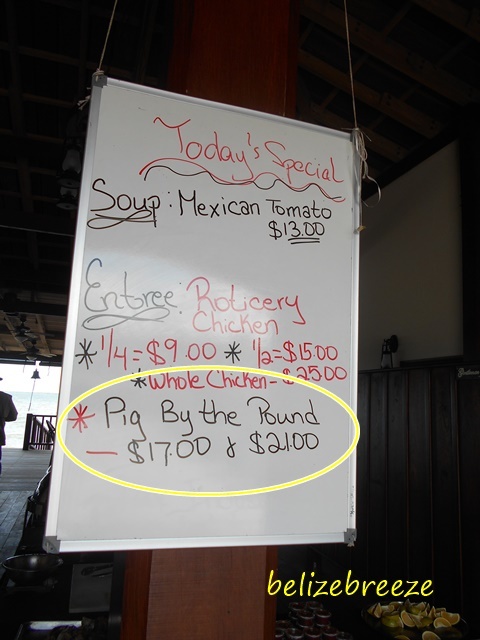 Today's Special
Soup: Mexican Tomato
$13.00
Entree: Roticery
Chicken
*1/4=$9.00 * 1/2=$15.00
*Whole Chicken-$25.00
* Pig By the Pound
— $17.00 & $21.00
belizebreeze